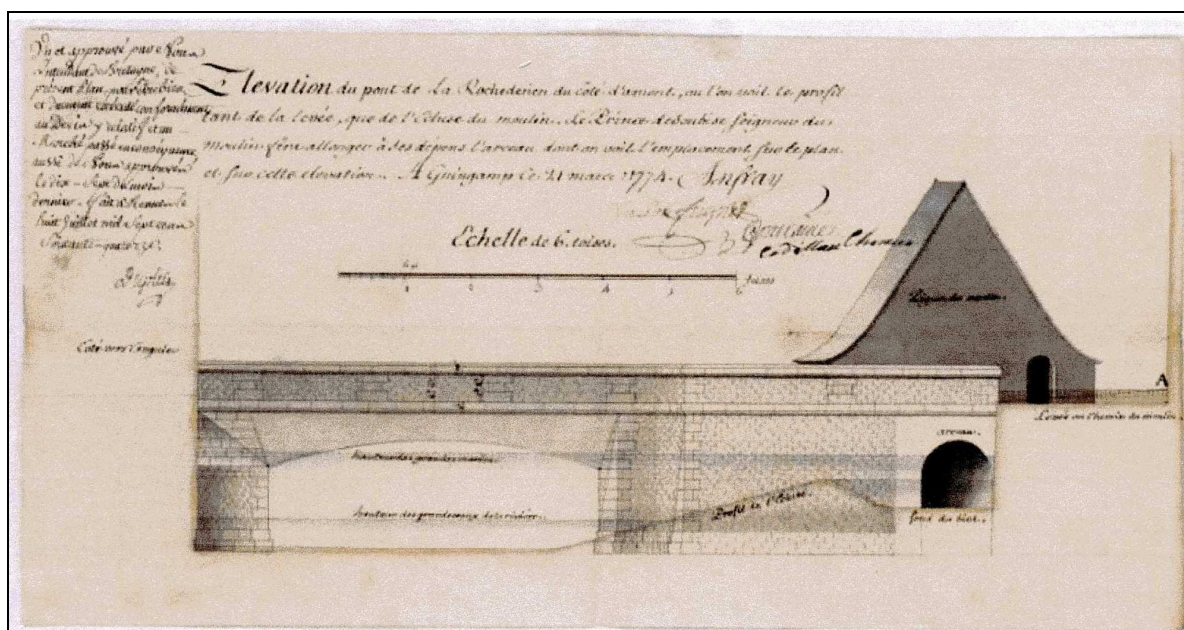 Vu et approuvé par Nous
Intendant de Bretagne, le
présent Plan pour être bien
et
au Devis y relatif et au
Marché passé en conséquence
aussi de Nous
le dix - Sept
dernier. fait à Rennes le
huit juillet mil Sept cent
Soixante-quatorze.
Elevation du pont de La Rochederien du côté d'amont, ou l'on voit le profil
tant de la levée, que de l'Ecluse du moulin. Le Prince de Soubise Seigneur du
moulin fera allonger à ses dépens l'arceau dont on voit l'emplacement sur le plan
et sur cette elevation. A Guingamp ce 21 mars 1774. Anfray
Echelle de 6. toises.
1 2 3 4 5 6 toises
Coté vers
Pignon du moulin.
A
Levée ou Chemin du moulin
arceau.
hauteur des grandes marées.
hauteur des grandes eaux de la riviere.
Profil de l'Ecluse.
fond du biez.